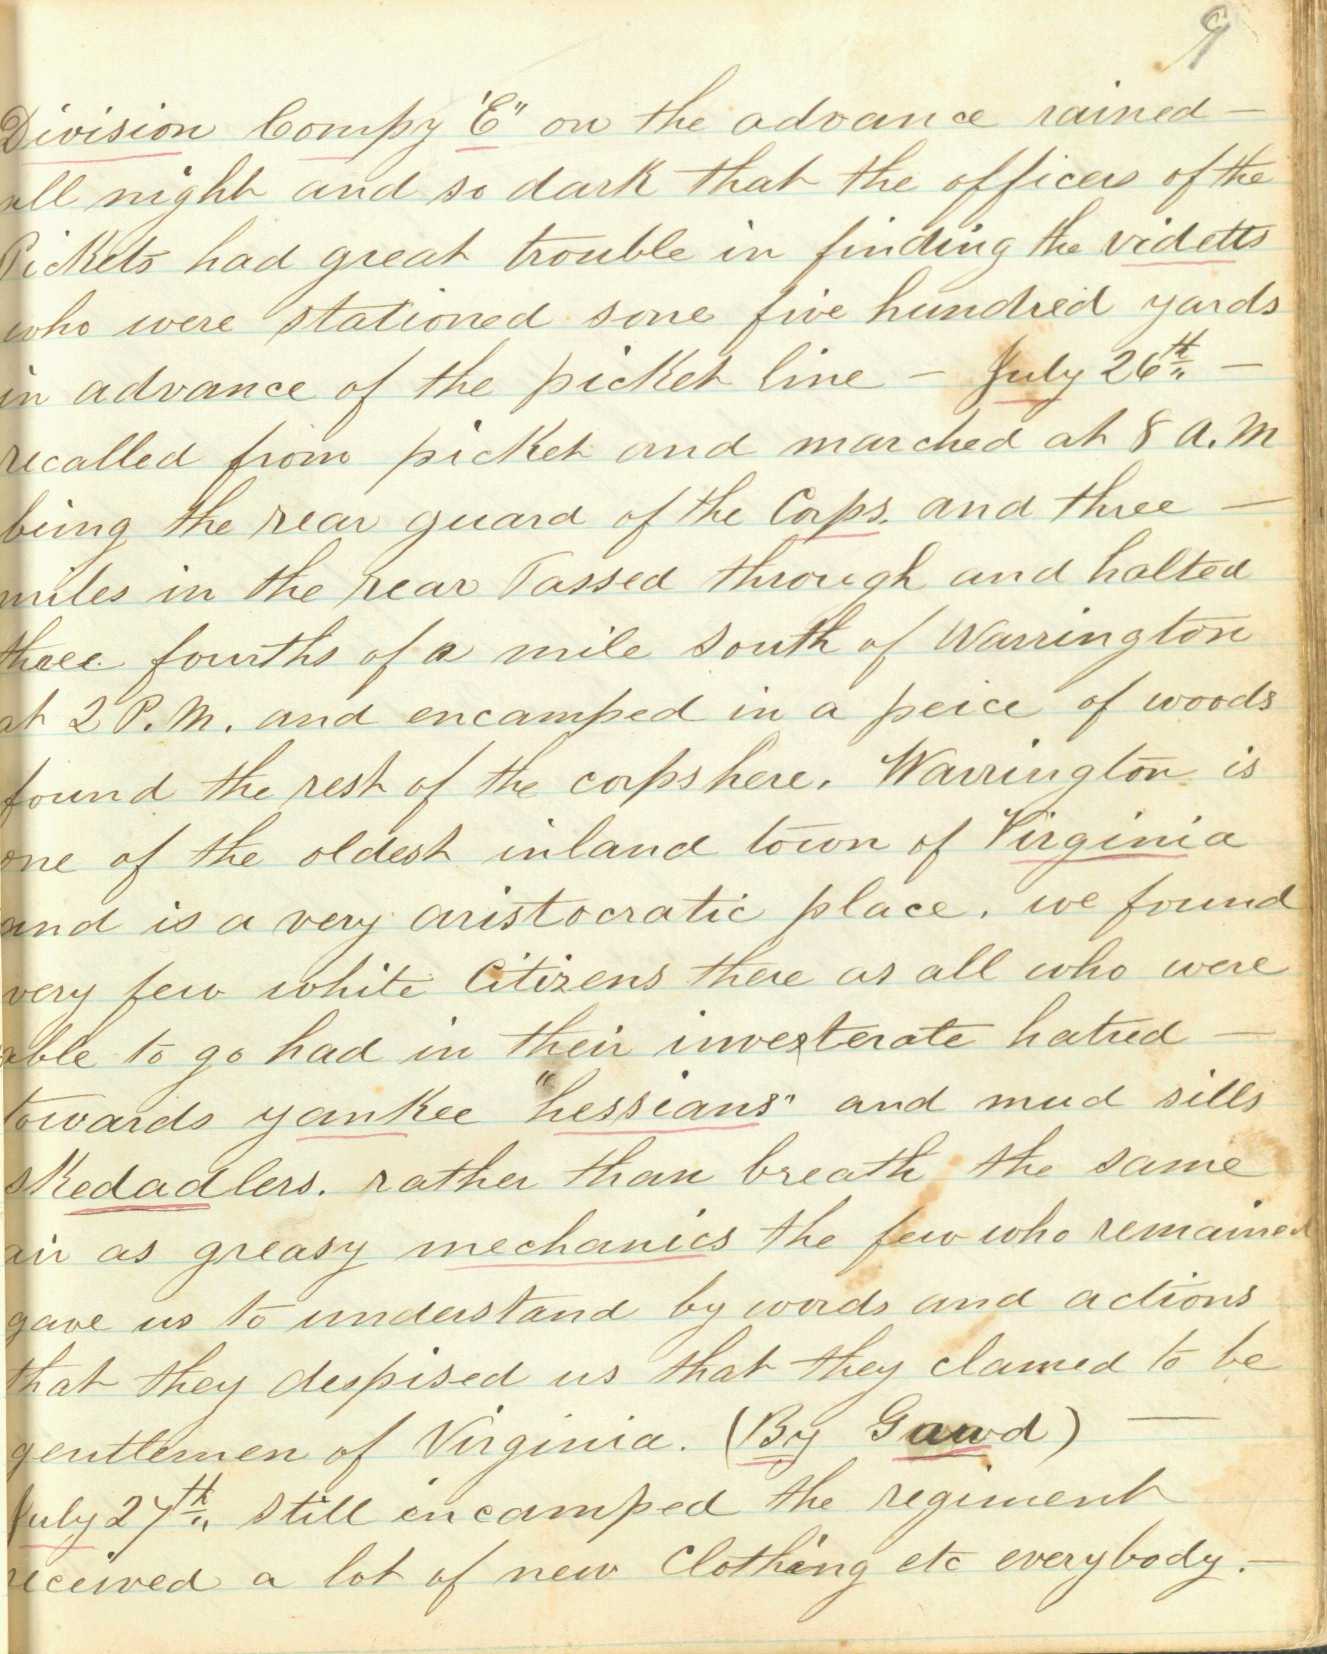 9
Division Compy "E" on the advance rained —
all night and so dark that the officers of the
Pickets had great trouble in finding the videtts
who were stationed sone five hundred yards
in advance of the picket line — July 26th —
recalled from picket and marched at 8 A.M
being the rear guard of the Corps. and three —
miles in the rear Passed through and halted
three fourths of a mile south of Warrington
at 2 P.M. and encamped in a peice of woods
found the rest of the corps here. Warrington is
one of the oldest inland town of Virginia
and is a very aristocratic place. we found
very few white Citizens there as all who were
able to go had in their inveterate hatred —
towards yankee "hessians" and mud sills
skedadlers. rather than breath the same
air as greasy mechanics the few who remained
gave us to understand by words and actions
that they despised us that they clamed to be
gentlemen of Virginia. (By Gawd) —
July 27th still encamped the regiment
received a lot of new Clothing etc everybody. —